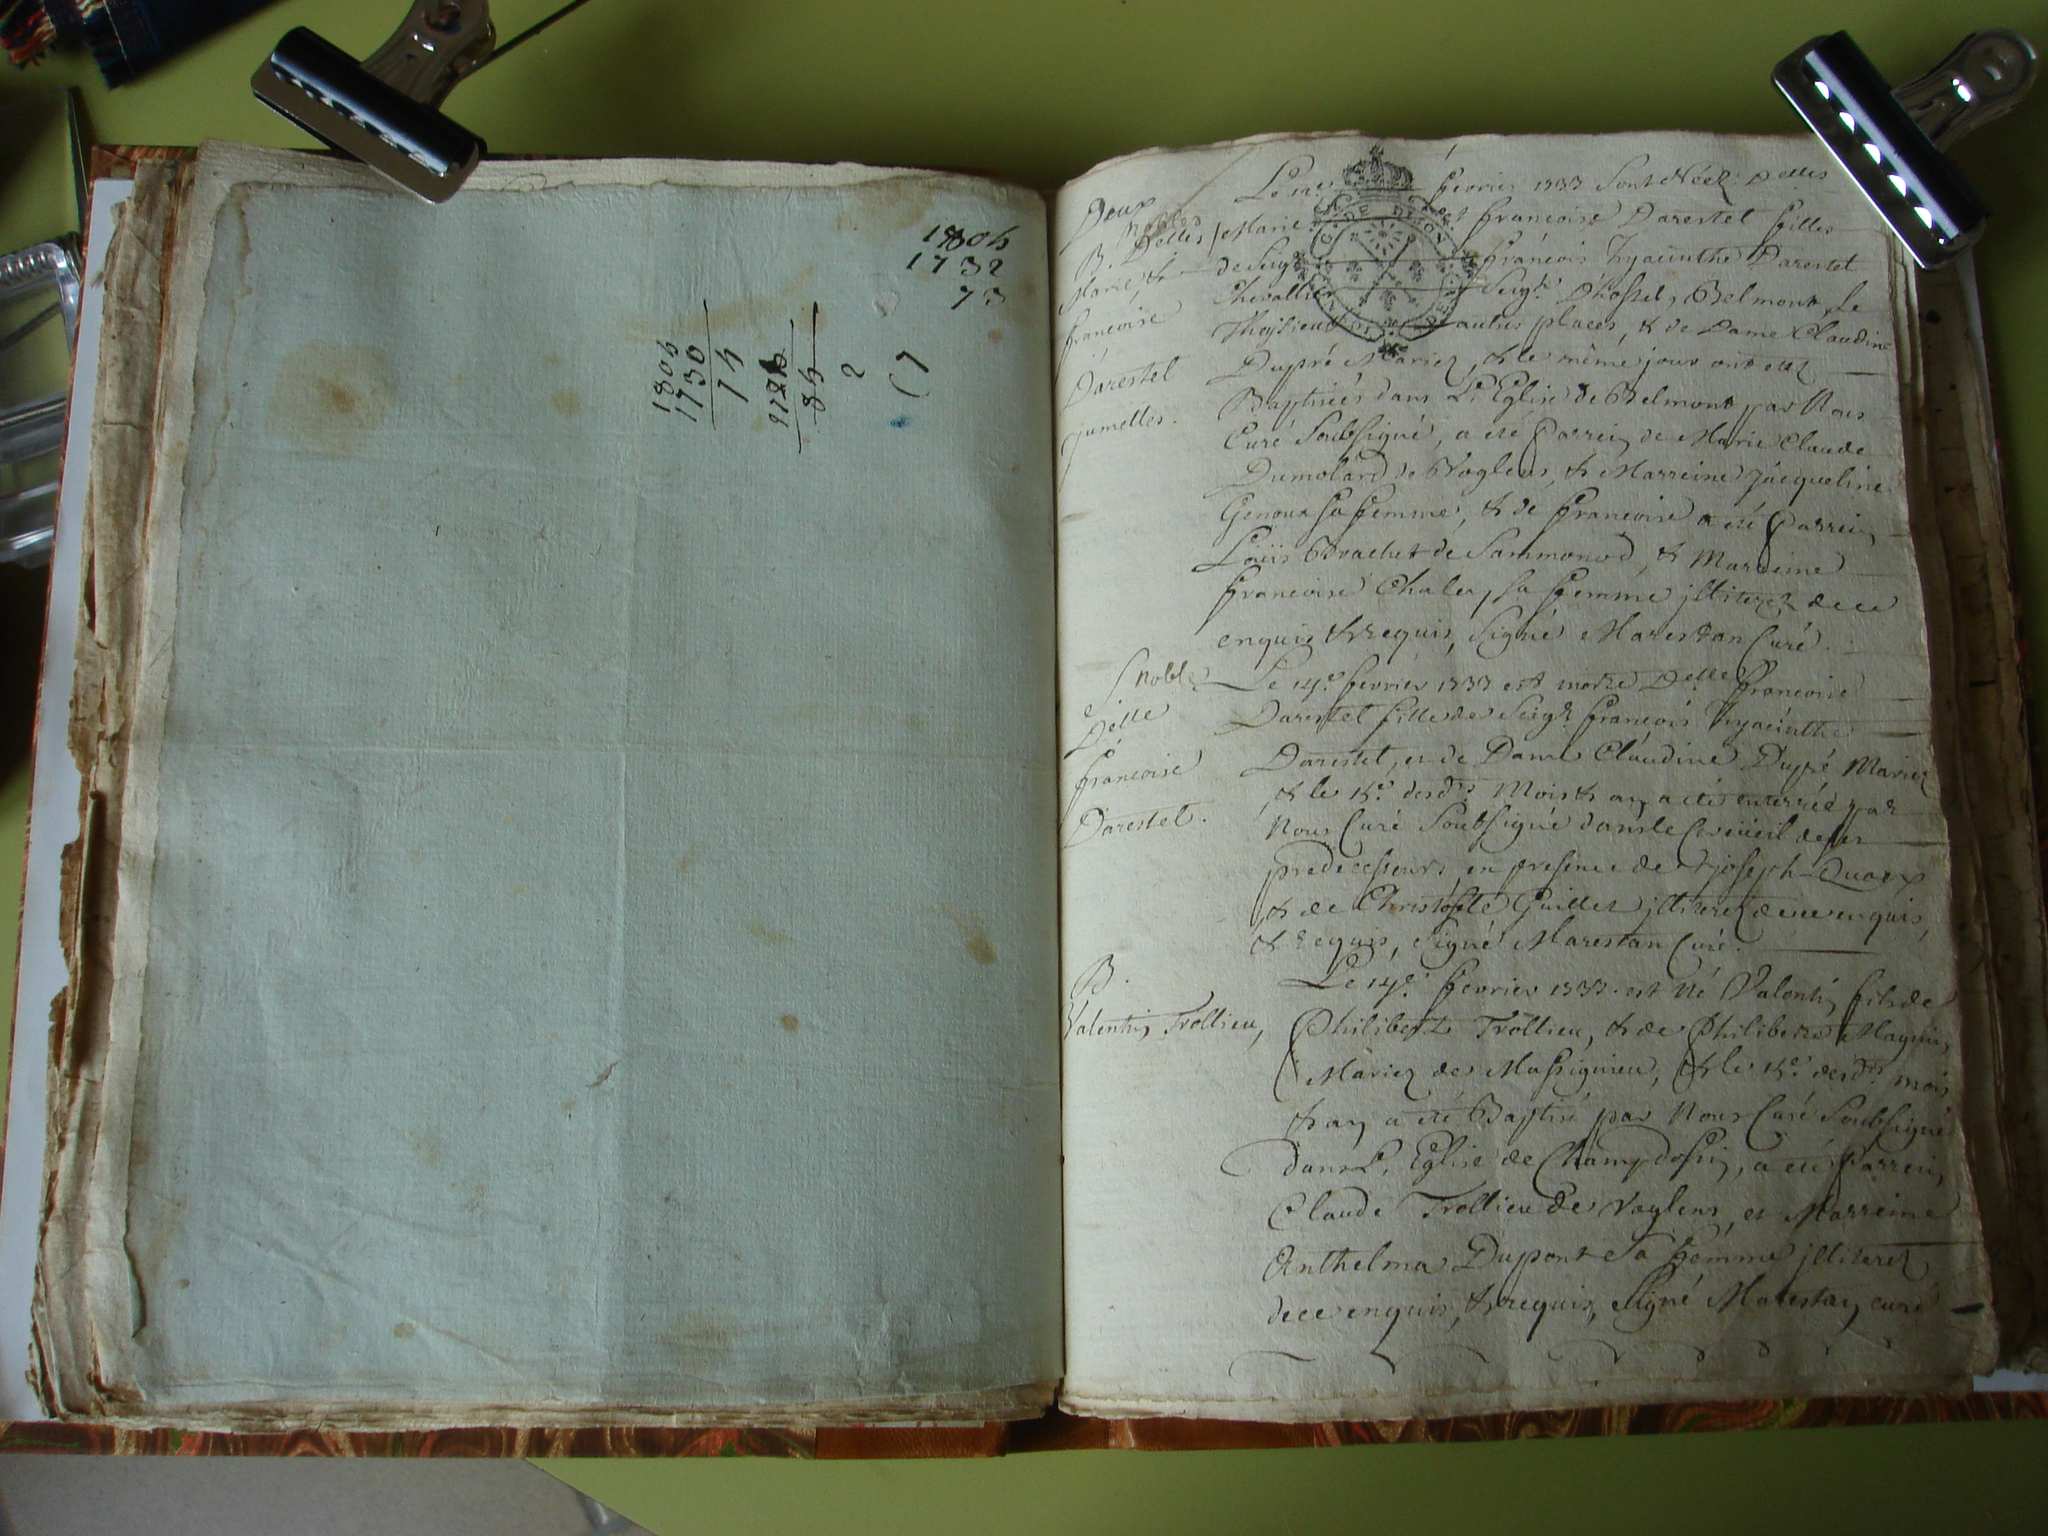 1804
1732
73
1804
1730
74
84
2
Deux
nobles
B. Delles
Marie, &
francoise
Darestel
jumelles.
Le 12e fevrier 1733 sont Néez Delles
Marie et francoise Darestel filles
de Seigr françois hyacinthe Darestel
Chevallier Seigr D'hostel, Belmont, Le
autres places, & de Dame Claudine
Dupré Mariez, & le même jour ont etez
Baptisées dans L'Eglise de Belmont par Nous
Curé Soubsigné, a été Parrein de Marie Claude
Dumolard de Voglens, & Marreine Jacqueline
Genoux sa femme, & de francoise a été Parrein
Loüis Brachet de Sammonod, & Marreine
francoise Chaley, sa femme jlliterez de ce
enquis & requis, Signé Marestan Curé.
S noble
Delle
francoise
Darestel.
Le 14e. fevrier 1733 est morte Delle francoise
Darestel fille de Seigr françois hyacinthe
Darestel, et de Dame Claudine Dupré Mariez
& le 15e. desdts Mois & an a été enterrée par
Nous Curé Soubsigné dans le Cerüeil de ses
predecesseurs, en presence de Joseph
& de Christofle Guillet jlliterez de ce enquis,
& requis, Signé Marestan Curé.
B.
Valentin Trollieu,
Le 14e. fevrier 1733. est Né Valentin fils de
Philibert Trollieu, & de Philiberte Magnin,
Mariez de Massignieu, & le 15e. desdts mois
& an a été Baptisé par Nous Curé Soubsigné
dans L'Eglise de Champdossin, a été Parrein,
Claude Trollieu de Voglens, et Marreine
Anthelma Dupont sa femme jlliterez
de ce enquis, & requis, Signé Marestan curé